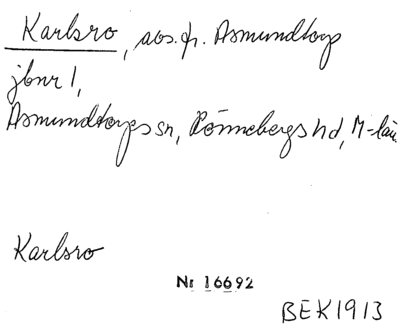 Karlsro, avs. fr. Asmundtorp
jbnr 1,
Asmundtorps sn, Rönnebergs hd, M-län
Karlsro
Nr 16692
BEK1913